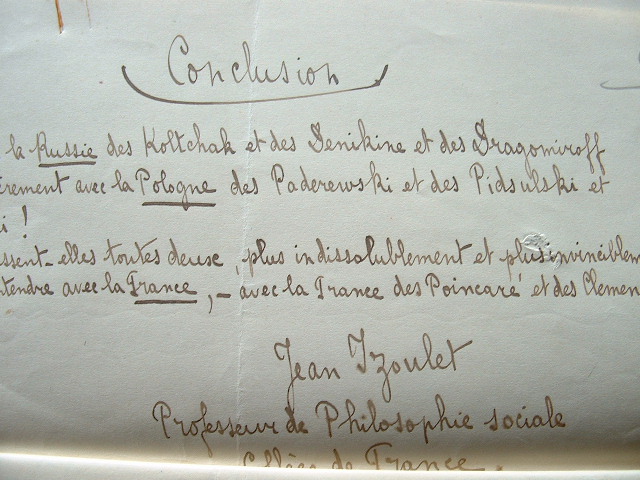 Conclusion
la Russie des Koltchak et des Denikine et des Dragomiroff
èrement avec la Pologne des Paderewski et des Pidsulski et
i !
ssent-elles toutes deuse, plus indissolublement et plus invinciblem
ntendre avec la France, - avec la France des Poincaré et des Clemen
Jean Izoulet
Professeur de Philosophie sociale
Collège de France.